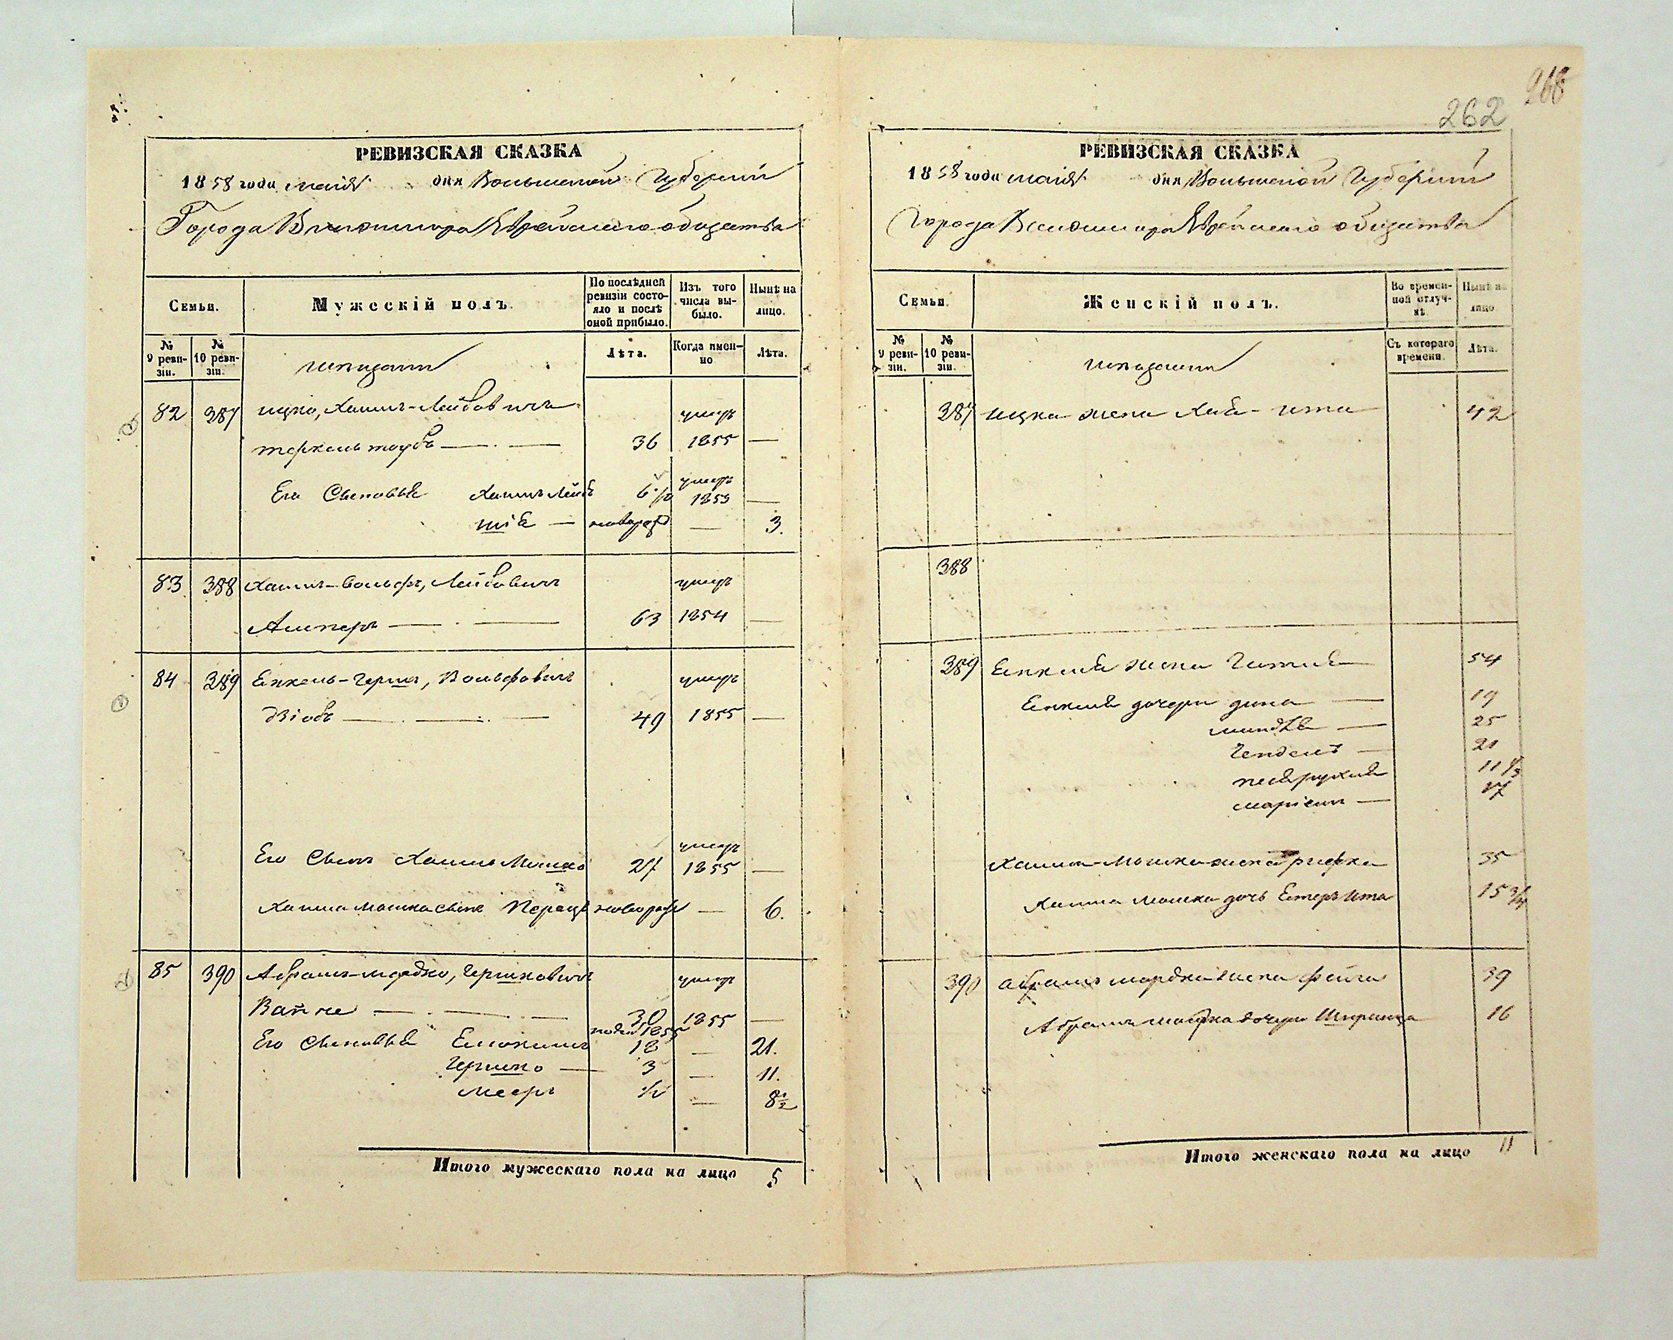 268
262
РЕВИЗСКАЯ СКАЗКА
1858 года маія дня Волынской Губерніи
Города Владимира Еврейскаго общества
Семьи.
Мужескій полъ.
По послѣдней ревизіи состояло и послѣ оной прибыло.
Изъ того числа выбыло.
Нынѣ на лицо.
№ 9 ревизіи.
№ 10 ревизіи.
Лѣта.
Когда именно
Лѣта.
мѣщане
82 387 Ицко, Хаимъ-Лейбовичъ умеръ
36 1855 —
Его Сыновья Хаимъ Лейбъ умеръ
1853 —
новорож — 3.
83 388 Хаимъ-Вольфъ, Лейбовичъ умеръ
Альтеръ — 63 1854 —
84 389 Енкель-Герш, Вольфовичъ умеръ
Дзіобъ — 49 1855 —
умеръ
Его Сынъ Хаимъ Мошко 27 1855 —
Хаима Мошка сынъ Перецъ новорож — 6.
85 390 Абрамъ-Мордко, Гершковичъ умеръ
Вайне — 30 1855 —
Его Сыновья 18 — 21.
Гершко — 3 — 11.
Мееръ 1/2 — 8 1/2
Итого мужескаго пола на лицо 5
РЕВИЗСКАЯ СКАЗКА
1858 года маія дня Волынской Губерніи
Города Владимира Еврейскаго общества
Семьи.
Женскій полъ.
Во временной отлучкѣ.
Нынѣ на лицо.
№ 9 ревизіи.
№ 10 ревизіи.
Съ котораго времени.
Лѣта.
мѣщане
387 Ицка жена Хая-Ита 42
388
389 Енкеля жена Гитля 54
Енкеля дочери Дина — 19
Миндля — 25
Гендель — 21
11 1/3
Маріемъ — 17
Хаима-Мошка жена Рифка 35
Хаима Мошка дочь Естеръ Ита 15 3/4
390 Абрама Мордка жена Фейга 39
Абрама Мордка дочери Шпринца 16
Итого женскаго пола на лицо 11